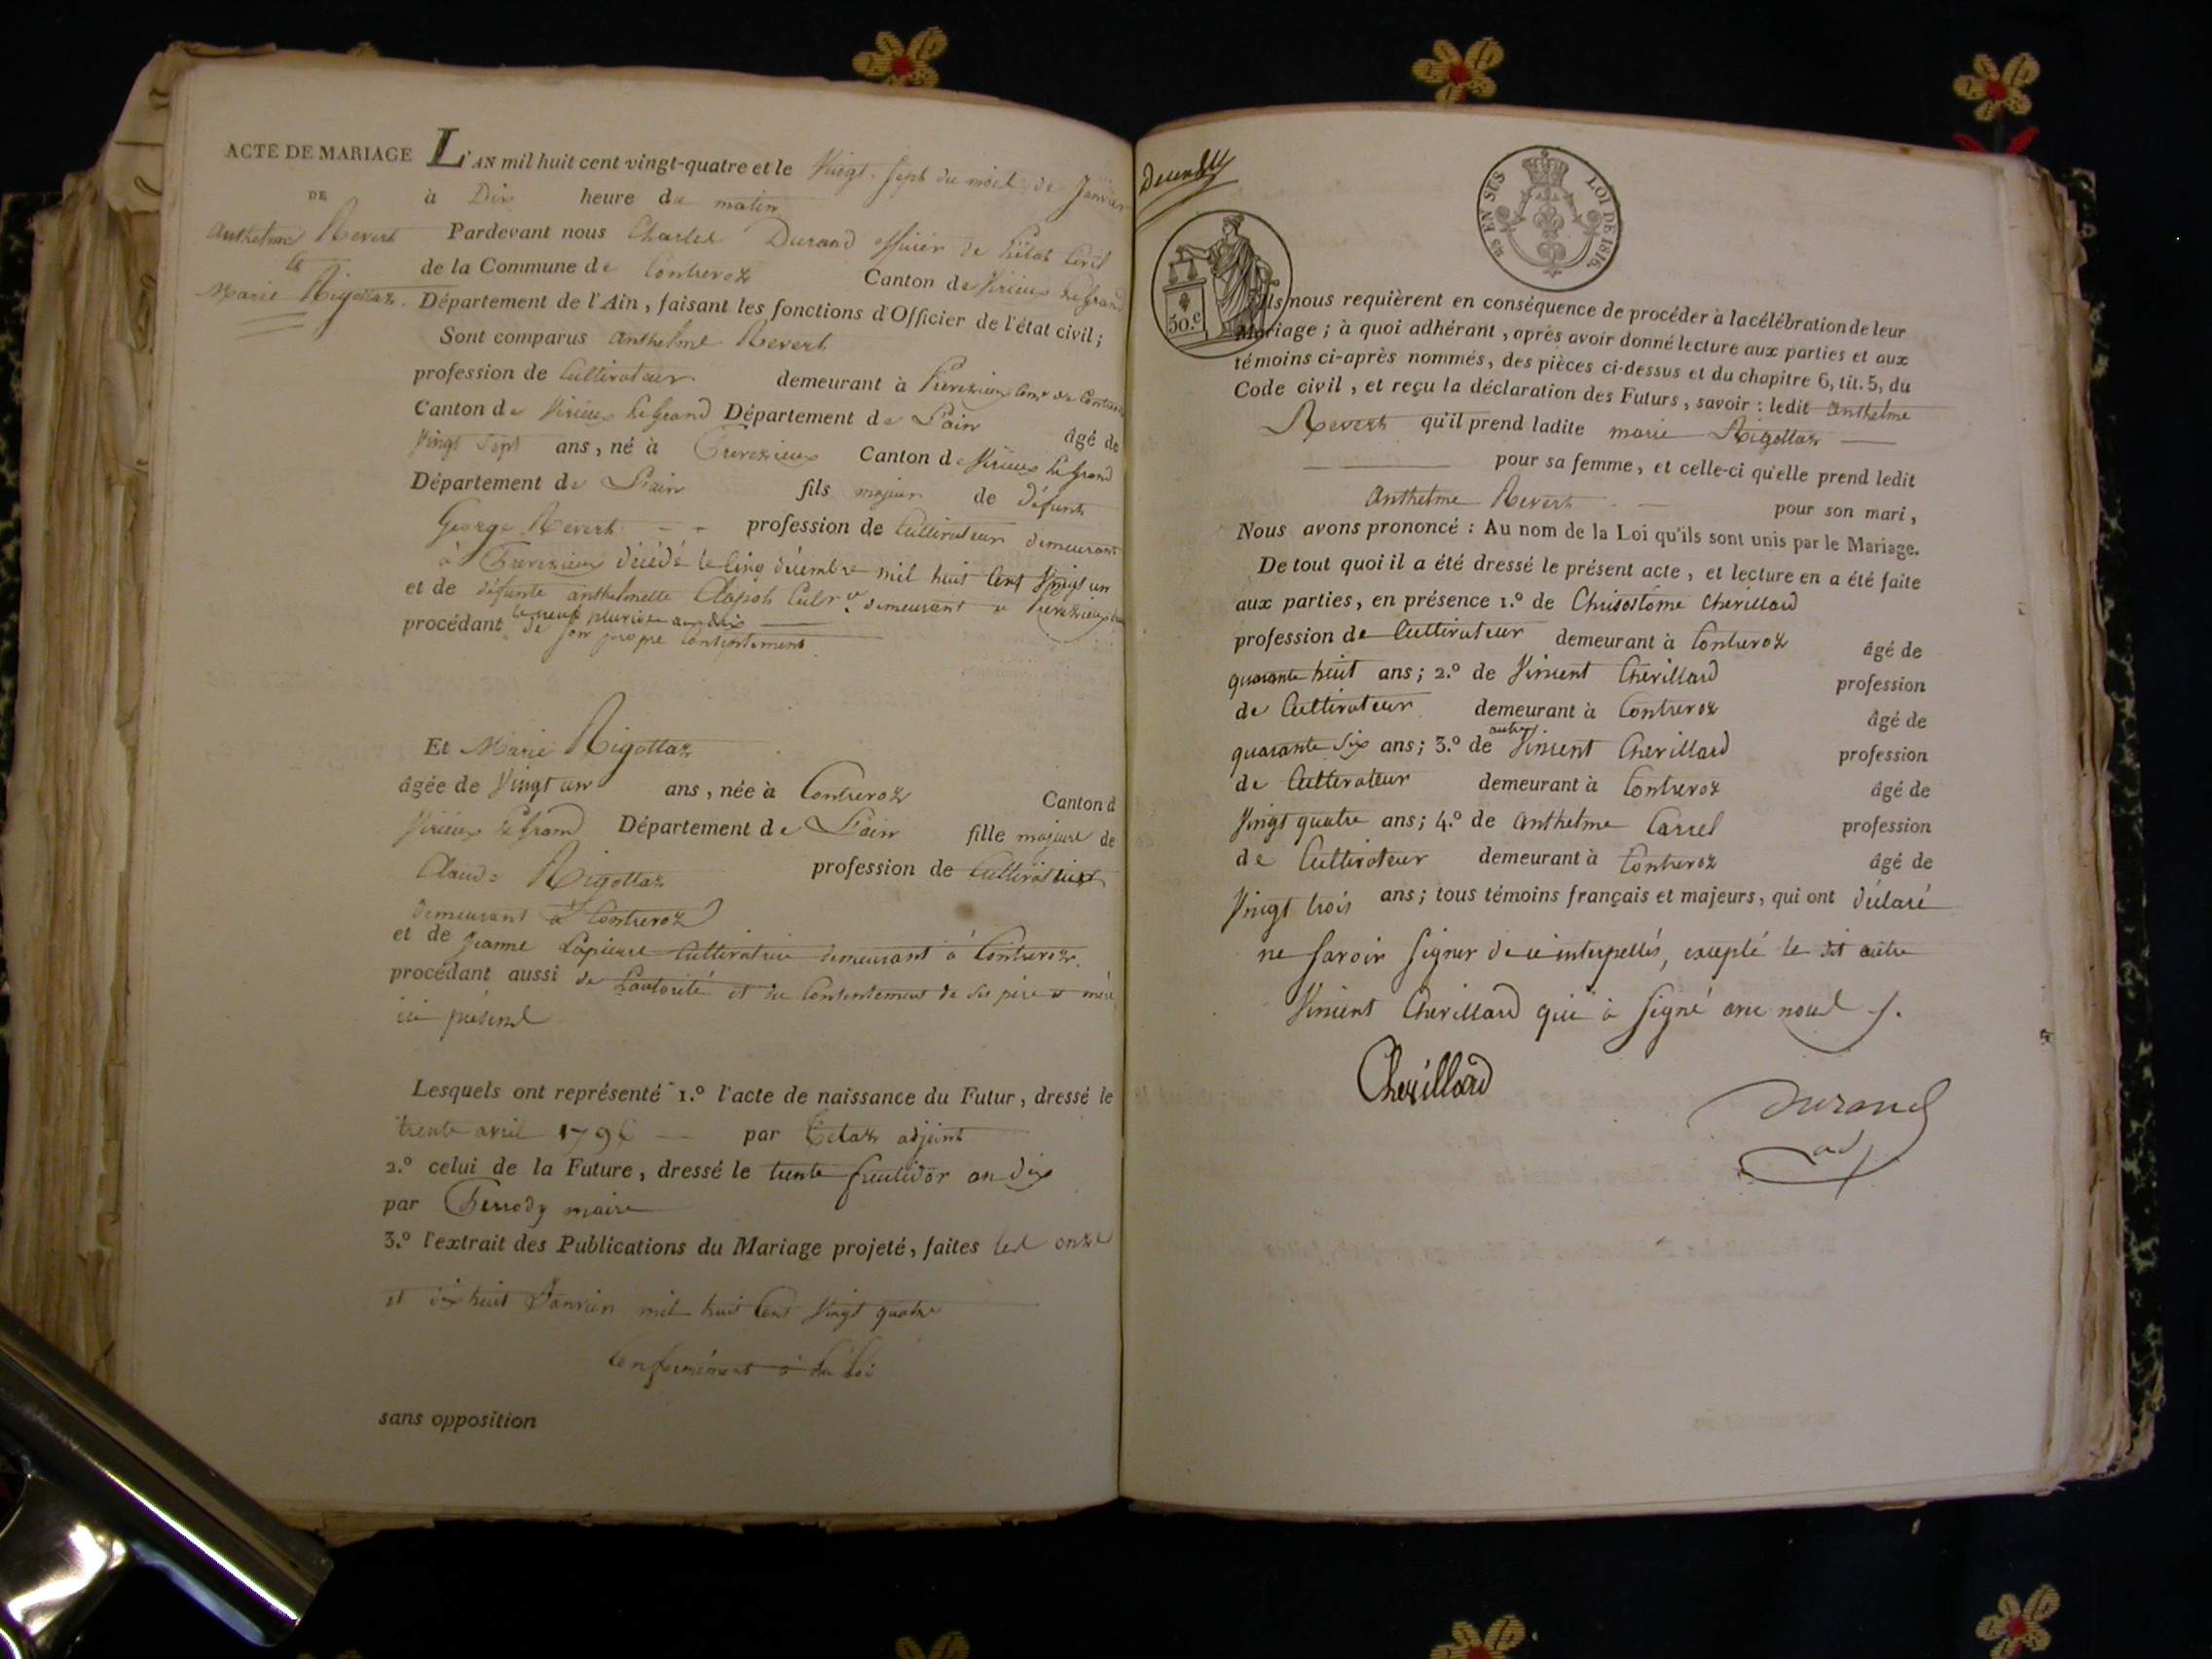 ACTE DE MARIAGE
DE
Anthelme Revert
et
Marie Rigollaz.
L'AN mil huit cent vingt-quatre et le Vingt-sept du mois de Janvier
à Dix heure du matin
Pardevant nous Charles Durand officier de l'état Civil
de la Commune de Contrevoz Canton de Virieux Le Grand
Département de l'Ain, faisant les fonctions d'Officier de l'état civil;
Sont comparus anthelme Revert
profession de Cultivateur demeurant à
Canton de Virieux Le Grand Département de L'ain âgé de
Vingt Sept ans, né à Canton de Virieux Le Grand
Département de L'ain fils majeur de défunts
George Revert - - profession de Cultivateur demeurant
à décédé le Cinq décembre mil huit Cent Vingt un
et de défunte anthelmette demeurant
le neuf pluviose an dix
procédant de son propre Consentement
Et Marie Rigollaz
âgée de Vingt un ans, née à Contrevoz Canton d
Virieux Le Grand Département de L'ain fille majeure de
Claude Rigollaz profession de Cultivateur
demeurant à Contrevoz
et de Jeanne Lapierre Cultivatrice demeurant à Contrevoz.
procédant aussi de L'autorité et du Consentement de ses père et mère
ici présens
Lesquels ont représenté 1.º l'acte de naissance du Futur, dressé le
trente avril 1796 — par adjoint
2.º celui de la Future, dressé le trente fructidor an dix
par maire
3.º l'extrait des Publications du Mariage projeté, faites les onze
et dix huit Janvier mil huit Cent Vingt quatre
Conformément à La Loi
sans opposition
US EN SUS LOI DE 1816.
50.c
Ils nous requièrent en conséquence de procéder à la célébration de leur
Mariage; à quoi adhérant, après avoir donné lecture aux parties et aux
témoins ci-après nommés, des pièces ci-dessus et du chapitre 6, tit. 5, du
Code civil, et reçu la déclaration des Futurs, savoir: ledit Anthelme
Revert qu'il prend ladite marie Rigollaz —
— pour sa femme, et celle-ci qu'elle prend ledit
Anthelme Revert - — pour son mari,
Nous avons prononcé: Au nom de la Loi qu'ils sont unis par le Mariage.
De tout quoi il a été dressé le présent acte, et lecture en a été faite
aux parties, en présence 1.º de Chrisostôme Chevillard
profession de Cultivateur demeurant à Contrevoz âgé de
quarante huit ans; 2.º de Vincent Chevillard profession
de Cultivateur demeurant à Contrevoz âgé de
quarante Six ans; 3.º de autre Vincent Chevillard profession
de Cultivateur demeurant à Contrevoz âgé de
Vingt quatre ans; 4.º de Anthelme Carrel profession
de Cultivateur demeurant à Contrevoz âgé de
Vingt trois ans; tous témoins français et majeurs, qui ont déclaré
ne Savoir Signer de ce interpellés, excepté le dit autre
Vincent Chevillard qui à Signé avec nous /.
Chevillard
Durand